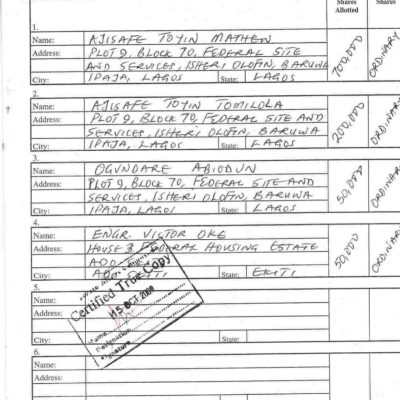 Shares Allotted
Shares
1.
Name: AJISAFE TOYIN MATHEW
Address: PLOT 9, BLOCK 70, FEDERAL SITE
AND SERVICES, ISHERI OLOFIN, BARUWA
City: IPAJA, LAGOS State: LAGOS
700,000 ORDINARY
2.
Name: AJISAFE TOYIN TOMILOLA
Address: PLOT 9, BLOCK 70, FEDERAL SITE AND
SERVICES, ISHERI OLOFIN, BARUWA
City: IPAJA, LAGOS State: LAGOS
200,000 ORDINARY
3.
Name: OGUNDARE ABIODUN
Address: PLOT 9, BLOCK 70, FEDERAL SITE AND
SERVICES, ISHERI OLOFIN, BARUWA
City: IPAJA, LAGOS State: LAGOS
50,000 ORDINARY
4.
Name: ENGR. VICTOR OKE
Address: HOUSE 3 FEDERAL HOUSING ESTATE
ADO
City: ADO EKITI State: EKITI
50,000 ORDINARY
Certified True Copy
15 OCT 2009
Name
Designation
Signature
5.
Name:
Address:
City: State:
6.
Name:
Address: